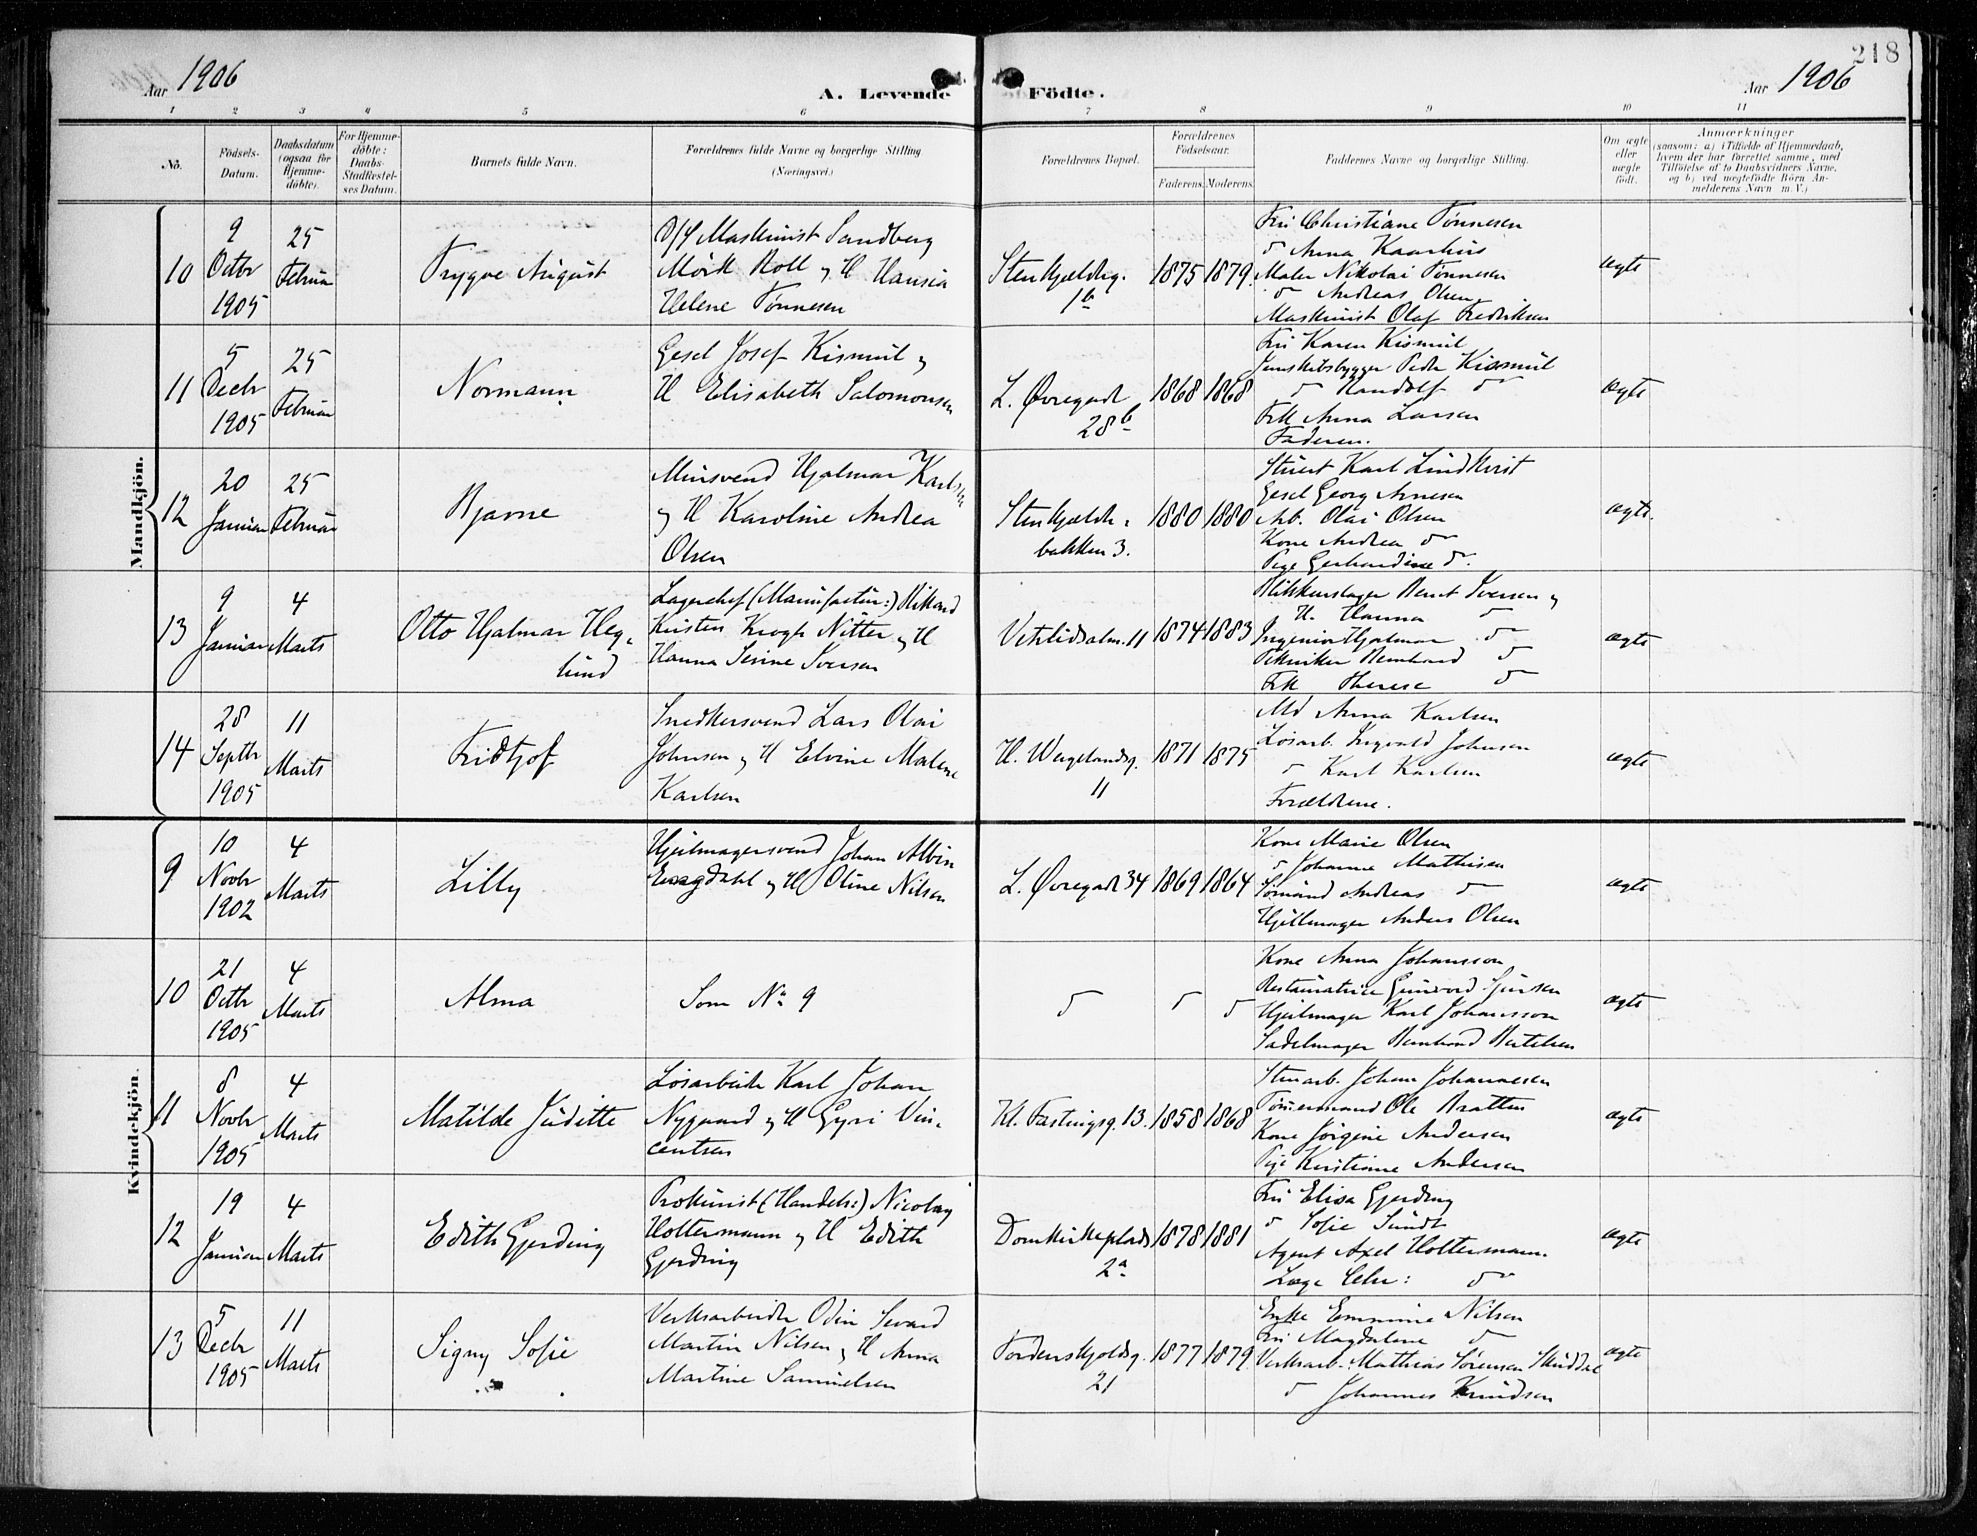 218
Aar 1906
A. Levende Födte.
Aar 1906
1 2 3 4 5 6 7 8 9 10 11
No.
Födsels-Datum.
Daabsdatum (ogsaa for Hjemmedöbte).
For Hjemmedöbte: Daabs-Stadfæstelses Datum.
Barnets fulde Navn.
Forældrenes fulde Navne og borgerlige Stilling (Næringsvei.)
Forældrenes Bopæl.
Forældrenes Födselsaar.
Faderens. Moderens.
Faddernes Navne og borgerlige Stilling.
Om ægte eller uægte födt.
Anmærkninger
(saasom: a) i Tilfælde af Hjemmedaab, hvem der har forrettet samme, med Tilföielse af to Daabsvidners Navne, og b) ved uægtefödte Börn Anmelderens Navn m. V.)
Mandkjön.
10
9 Octbr 1905
25 Februar
Trygve August
Maskinist Sandberg
Mörk Roll og H Hansia
Helene Tönnesen
Stenkjeldeg. 1b
1875 1879.
Fru Christiane Tönnesen
d Anna Kaarhus
Maler Nikolai Tönnesen
d Andreas Olsen
Maskinist Olaf Fredriksen
ægte
11
5 Decbr 1905
25 Februar
Normann
Gesel Josef Kismul og
H Elisabeth Salomonsen
L. Øvregade 28b
1868 1868
Fru Karen Kismul
Jernskibsbygger Peder Kismul
d Randolf do
Frk Anna Larsen
Faderen.
ægte
12
20 Januar
25 Februar
Bjarne
Mursvend Hjalmar Karlsen
og H Karoline Andrea
Olsen
Stenkjelder-
bakken 3.
1880 1880
Stuert Karl Lindkvist
Gesel Georg Arnesen
Arb. Olai Olsen
Kone Andrea do
Pige Gerhardine d.
ægte.
13
9 Januar
4 Marts
Otto Hjalmar Heg-
lund
Lagerchef (Manufactur:) Rikard
Kristen Krogh Nitter og H
Hanna Serine Iversen
Vetrlidsalm. 11
1874 1883
Blikkenslager Bernt Iversen og
H. Hanna d
Ingeniør Hjalmar do
Tekniker Bernhard d
Frk Therese d
ægte
14
28 Septbr 1905
11 Marts
Fridtjof
Snedkersvend Lars Olai
Johnsen og H Elvine Malene
Karlsen
H. Wergelandsg. 11
1871 1875
Md Anna Karlsen
Løsarb. Ingvald Johnsen
d Karl Karlsen
Forældrene.
ægte
Kvindekjön.
9
10 Novbr 1902
4 Marts
Lilly
Hjulmagersvend Johan Albin
Engdahl og H Oline Nilsen
L. Øvregade 34
1869 1864
Kone Marie Olsen
d Johanne Mathisen
Sömand Andreas d
Hjulmager Anders Olsen
ægte
10
21 Octbr 1905
4 Marts
Alma
Som No 9
d d d
Kone Anna Johansson
Restauratrice Gunvord Sjursen
Hjulmager Karl Johansson
Sadelmager Bernhard Bertelsen
ægte
11
8 Novbr 1905
4 Marts
Matilde Juditte
Løsarbeider Karl Johan
Nygaard og H Gyri Vin-
centsen
Kl. Fastingsg. 13.
1858 1868
Stenarb. Johan Johannesen
Tömmermand Ole Bratten
Kone Jörgine Andersen
Pige Kristiane Andersen
ægte
12
19 Januar
4 Marts
Edith Gjerding
Prokurist (Handels:) Nicolay
Holtermann og H Edith
Gjerding
Domkirkeplads 2a
1878 1881
Fru Elisa Gjerding
d Sofie Sundt
Agent Axel Holtermann.
Læge Chr: do
ægte
13
5 Decbr 1905
11 Marts
Signy Sofie
Verksarbeider Odin Sevard
Martin Nilsen og H Anna
Martine Samuelsen
Tordenskjoldsg. 21
1877 1879
Enke Emmine Nilsen
Fru Magdalene d
Verksarb. Mathias Sörensen Skuddal
d Johannes Knudsen
ægte